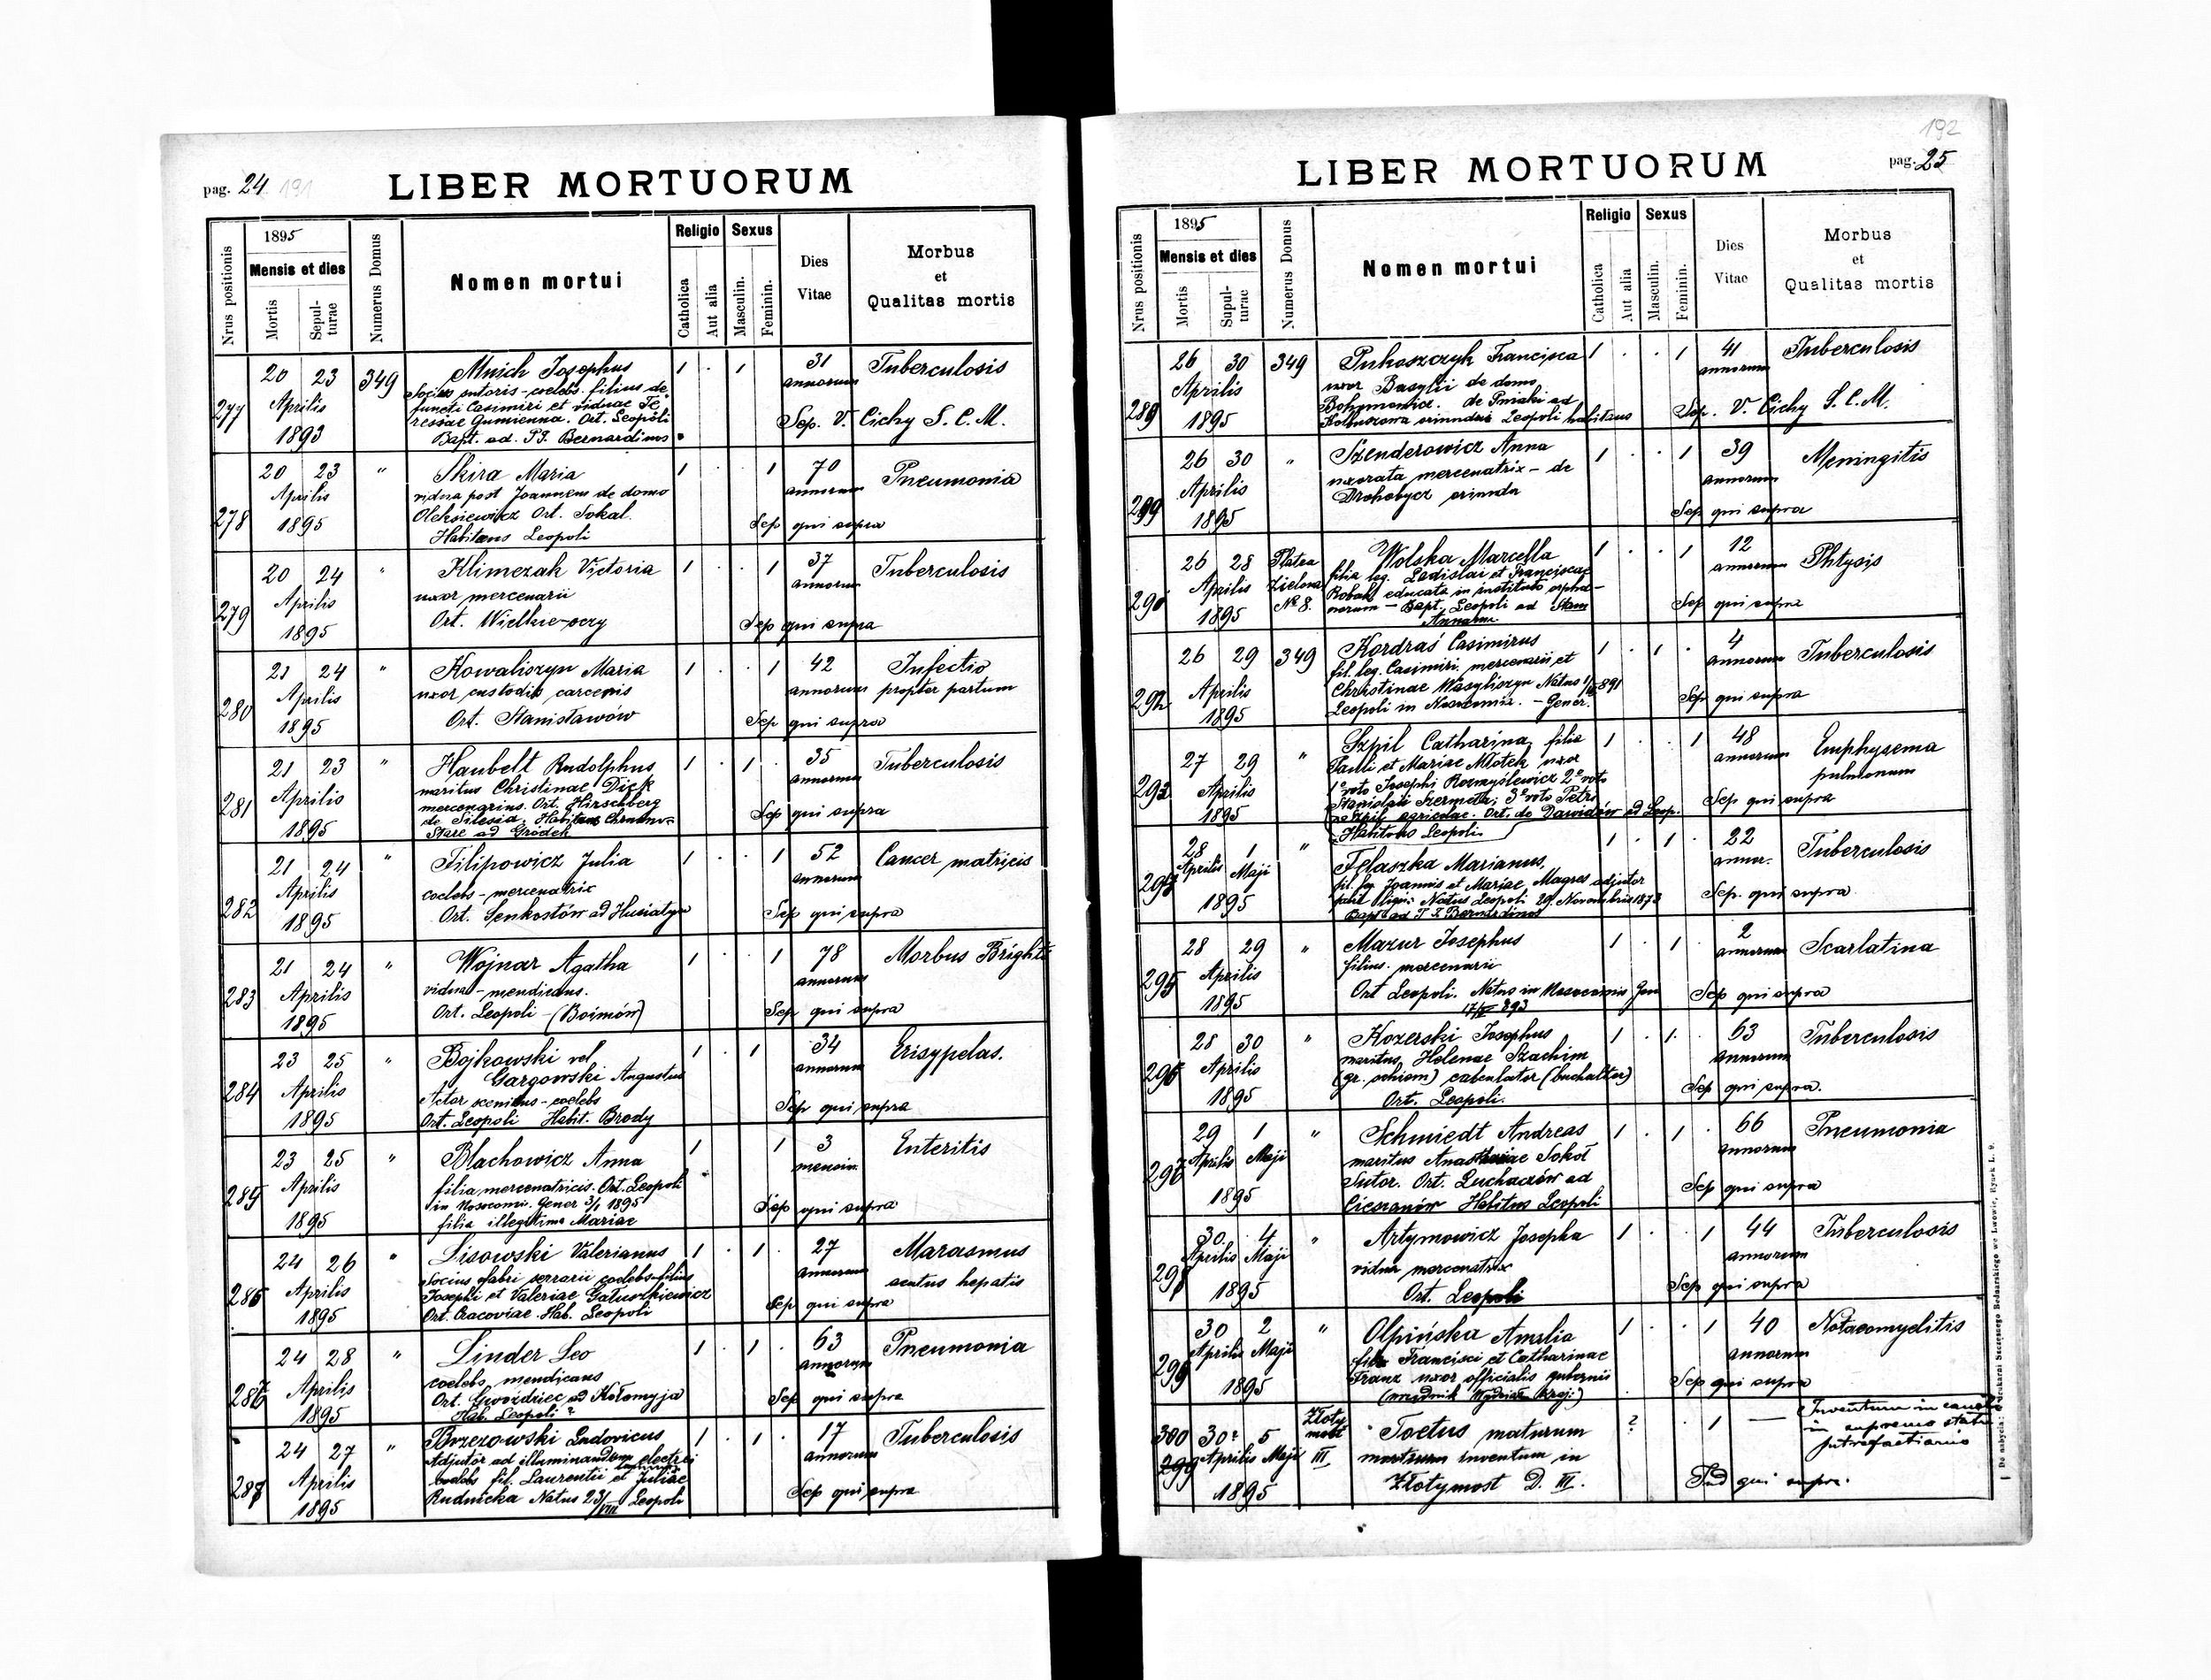 pag. 24. 191
LIBER MORTUORUM
Nrus positionis
1895
Mensis et dies
Mortis
Sepulturae
Numerus Domus
Nomen mortui
Religio
Catholica
Aut alia
Sexus
Masculin.
Feminin.
Dies
Vitae
Morbus
et
Qualitas mortis
277 20 23 Aprilis 1893 349
Mnich Josephus
Socius sutoris - coelebs. filius de
functi Casimiri et viduae Te
ressae Gumienna. Ort. Leopoli
Bapt. ad. PP. Bernardinos
1 . 1 31 annorum Tuberculosis
Sep. V. Cichy S. C. M.
278 20 23 Aprilis 1895 "
Skira Maria
vidua post Joannem de domo
Oleksiewicz Ort. Sokal.
Habitans Leopoli
1 . . 1 70 annorum Pneumonia
Sep qui supra
279 20 24 Aprilis 1895 "
Klimczak Victoria
uxor mercenarii
Ort. Wielkie-oczy
1 . . 1 37 annorum Tuberculosis
Sep qui supra
280 21 24 Aprilis 1895 "
Kowaliszyn Maria
uxor custodis carceris
Ort. Stanisławów
1 . . 1 42 annorum Infectio
propter partum
Sep qui supra
281 21 23 Aprilis 1895 "
Haubelt Rudolphus
maritus Christinae Dick
mercenarius. Ort. Hirschberg
de Silesia. Habitans
Stare ad Gródek
1 . 1 . 35 annorum Tuberculosis
Sep qui supra
282 21 24 Aprilis 1895 "
Filipowicz Julia
coelebs - mercenatrix
Ort. Senkostów ad Husiatyn
1 . . 1 52 annorum Cancer matricis
Sep qui supra
283 21 24 Aprilis 1895 "
Wojnar Agatha
vidua - mendicans.
Ort. Leopoli - (Boimów)
1 . . 1 78 annorum Morbus Brighti
Sep qui supra
284 23 25 Aprilis 1895 "
Bojkowski vel
Gargowski Augustus
Actor scenicus - coelebs
Ort. Leopoli Habit. Brody
1 . 1 34 annorum Erisypelas.
Sep qui supra
285 23 25 Aprilis 1895 "
Blachowicz Anna
filia mercenatricis. Ort. Leopoli
in Nosocomii. Gener 3/1 1895
filia illegitima Mariae
1 1 3 mensium Enteritis
Sep qui supra
286 24 26 Aprilis 1895 "
Lisowski Valerianus
Socius fabri serrarii coelebs - filius
Josephi et Valeriae Gałuszkiewicz
Ort. Cracoviae. Hab. Leopoli
1 . 1 . 27 annorum Marasmus
acutus hepatis
Sep qui supra
287 24 28 Aprilis 1895 "
Linder Leo
coelebs mendicans
Ort. Gwoździec ad Kołomyja
Hab. Leopoli
1 . 1 . 63 annorum Pneumonia
Sep qui supra
288 24 27 Aprilis 1895 "
Brzezowski Ludovicus
Adjutor ad illuminandum electri
coelebs fil. Laurentii et Juliae
Rudnicka Natus 23/VIII Leopoli
1 . 1 . 17 annorum Tuberculosis
Sep qui supra
192
pag. 25
LIBER MORTUORUM
Nrus positionis
1895
Mensis et dies
Mortis
Supulturae
Numerus Domus
Nomen mortui
Religio
Catholica
Aut alia
Sexus
Masculin.
Feminin.
Dies
Vitae
Morbus
et
Qualitas mortis
289 26 30 Aprilis 1895 349
Pukaszczyk Francisca
uxor Basylii de domo
Bohymowicz. de Pniaki ad
Kolbuszowa oriunda Leopoli habitans
1 . . 1 41 annorum Tuberculosis
Sep. V. Cichy S. C. M.
26 30 Aprilis 1895 "
Szenderowicz Anna
uxorata mercenatrix - de
Drohobycz oriunda
1 . . 1 39 annorum Meningitis
Sep qui supra
26 28 Aprilis 1895 Platea Zielona № 8.
Wolska Marcella
filia leg. Ladislai et Franciscae
Robak educata in instituto orpha-
norum - Bapt. Leopoli ad Stam
Annam.
1 . . 1 12 annorum Phtysis
Sep qui supra
292 26 29 Aprilis 1895 349
Kordraś Casimirus
fil. leg. Casimiri mercenarii et
Christinae Wasyliszyn Natus 891
Leopoli in Nosocomii. - Gener.
1 . 1 . 4 annorum Tuberculosis
Sep qui supra
293 27 29 Aprilis 1895 "
Szpil Catharina filia
Pauli et Mariae Młotek uxor
1º voto Josephi Rozmyślewicz 2º voto
Stanislai Szermeta; 3º voto Petri
Szpil agricolae. Ort. de Dawidów ad Leop.
Habitans Leopoli.
1 . . 1 48 annorum Emphysema
pulmonum
Sep qui supra
294 28 Aprilis 1 Maji 1895 "
Felaszka Marianus,
fil. leg Joannis et Mariae Magres adjutor
Natus Leopoli 29. Novembris 1873
Bapt ad P P Bernardinos
1 . 1 . 22 annor. Tuberculosis
Sep. qui supra
295 28 29 Aprilis 1895 "
Mazur Josephus
filius mercenarii
Ort Leopoli. Natus in Nosocomio Gen
1 . 1 2 annorum Scarlatina
Sep qui supra
296 28 30 Aprilis 1895 "
Kozerski Josephus
maritus Helenae Szachim
(gr. schism) calculator (buchalter)
Ort. Leopoli.
1 . 1 . 63 annorum Tuberculosis
Sep qui supra.
297 29 Aprilis 1 Maji 1895 "
Schmiedt Andreas
maritus Anastasiae Sokoł
Sutor. Ort. Luchaczów ad
Cieszanów Habitus Leopoli
1 . 1 . 66 annorum Pneumonia
Sep qui supra
298 30 Aprilis 4 Maji 1895 "
Artymowicz Josepha
vidua mercenatrix
Ort. Leopoli
1 . . 1 44 annorum Tuberculosis
Sep qui supra
299 30 Aprilis 2 Maji 1895 "
Olpińska Amalia
filia Francisci et Catharinae
Franz uxor officialis gubernii
(urzędnik Wydział kraj.)
1 . . 1 40 annorum Notaeomyelitis
Sep qui supra
300 299 30 Aprilis 5 Maji 1895 Złoty most III
Foetus maturum
mortuum inventum in
Złotymost D. III.
? . 1 — Inventum in canali
in supremo statu
putrefactionis
Sed qui supra.